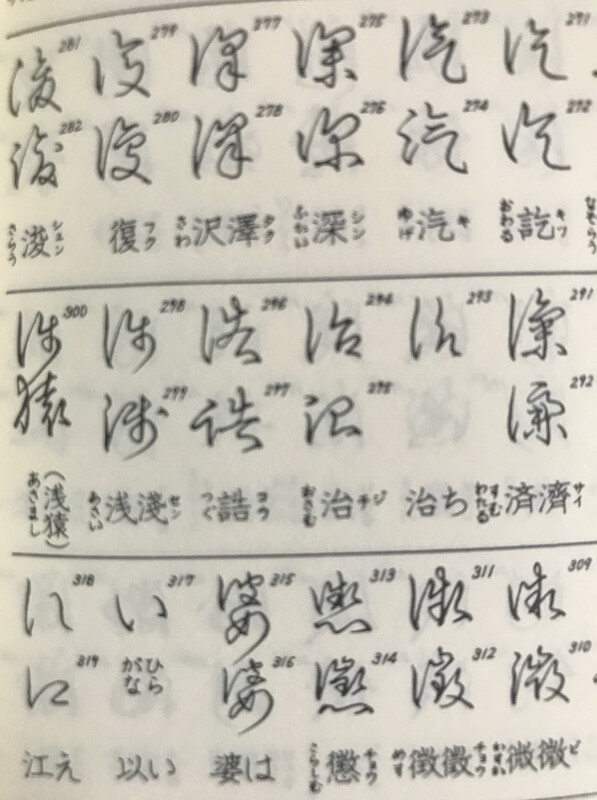 なぞらう
271
272
キツ 訖 おわる
273
274
キ 汽 ゆげ
275
276
シン 深 ふかい
277
278
タク 澤沢 さわ
279
280
フク 復
281
282
シュン 浚 さらう
291
292
サイ 濟済 すむ わたる
293
ち治
294
295
ジ チ 治 おさむ
296
297
コウ 誥 つぐ
298
299
セン 淺浅 あさい
300
(浅猿) あさまし
309
310
ビ 微微 かすか
311
312
チョウ 徵徴 めす
313
314
チョウ 懲 こらしむ
315
316
は婆
317
い
ひらがな
い以
318
319
え江